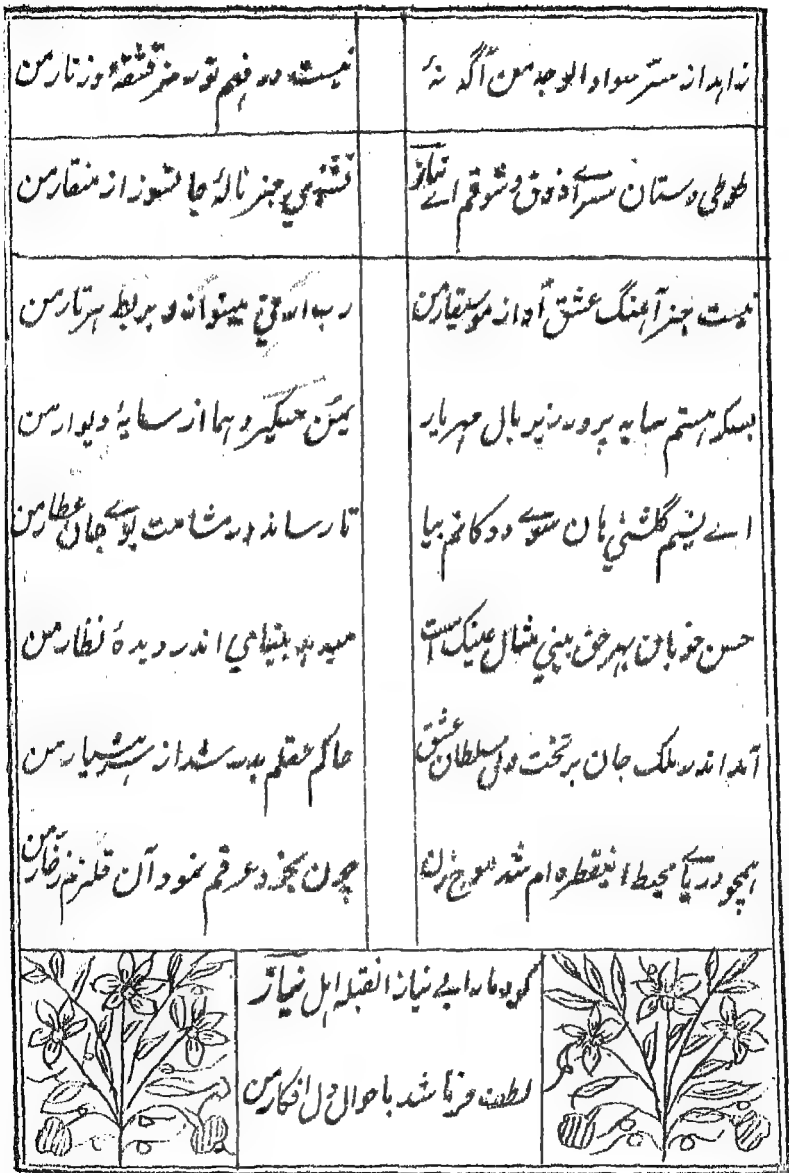 زاهد از سرّ سواد الوجه من آگه نهٔ
نیست در فهم تو رمز قشقه و زنار من
طوطی دستان سراے ذوق و شوقم اے نیاز
نشنوی جز نالهٔ جانسوز از منقار من
نیست جز آهنگ عشق آواز موسیقار من
رب ارنی مینوازد بربط هر تار من
بسکه هستم سایه پرور زیر بال مهر یار
یمن میگیرد هما از سایهٔ دیوار من
اے نسیم گلشنی هان سوے دوکانم بیا
تا رساند در مشامت بوے جان عطار من
حسن خوبان بهر حق بینی مثال عینک است
میدهد بینائی اندر دیدهٔ نظار من
آمد اندر ملک جان بر تخت دل سلطان عشق
حاکم عقلم بدر شد از سر هشیار من
همچو دریاے محیط این قطره ام شد موج زن
چون بخود غرقم نمود آن قلزم زخار من
کرد ما را بے نیاز آن قبلهٔ اهل نیاز
لطف فرما شد باحوال دل افکار من